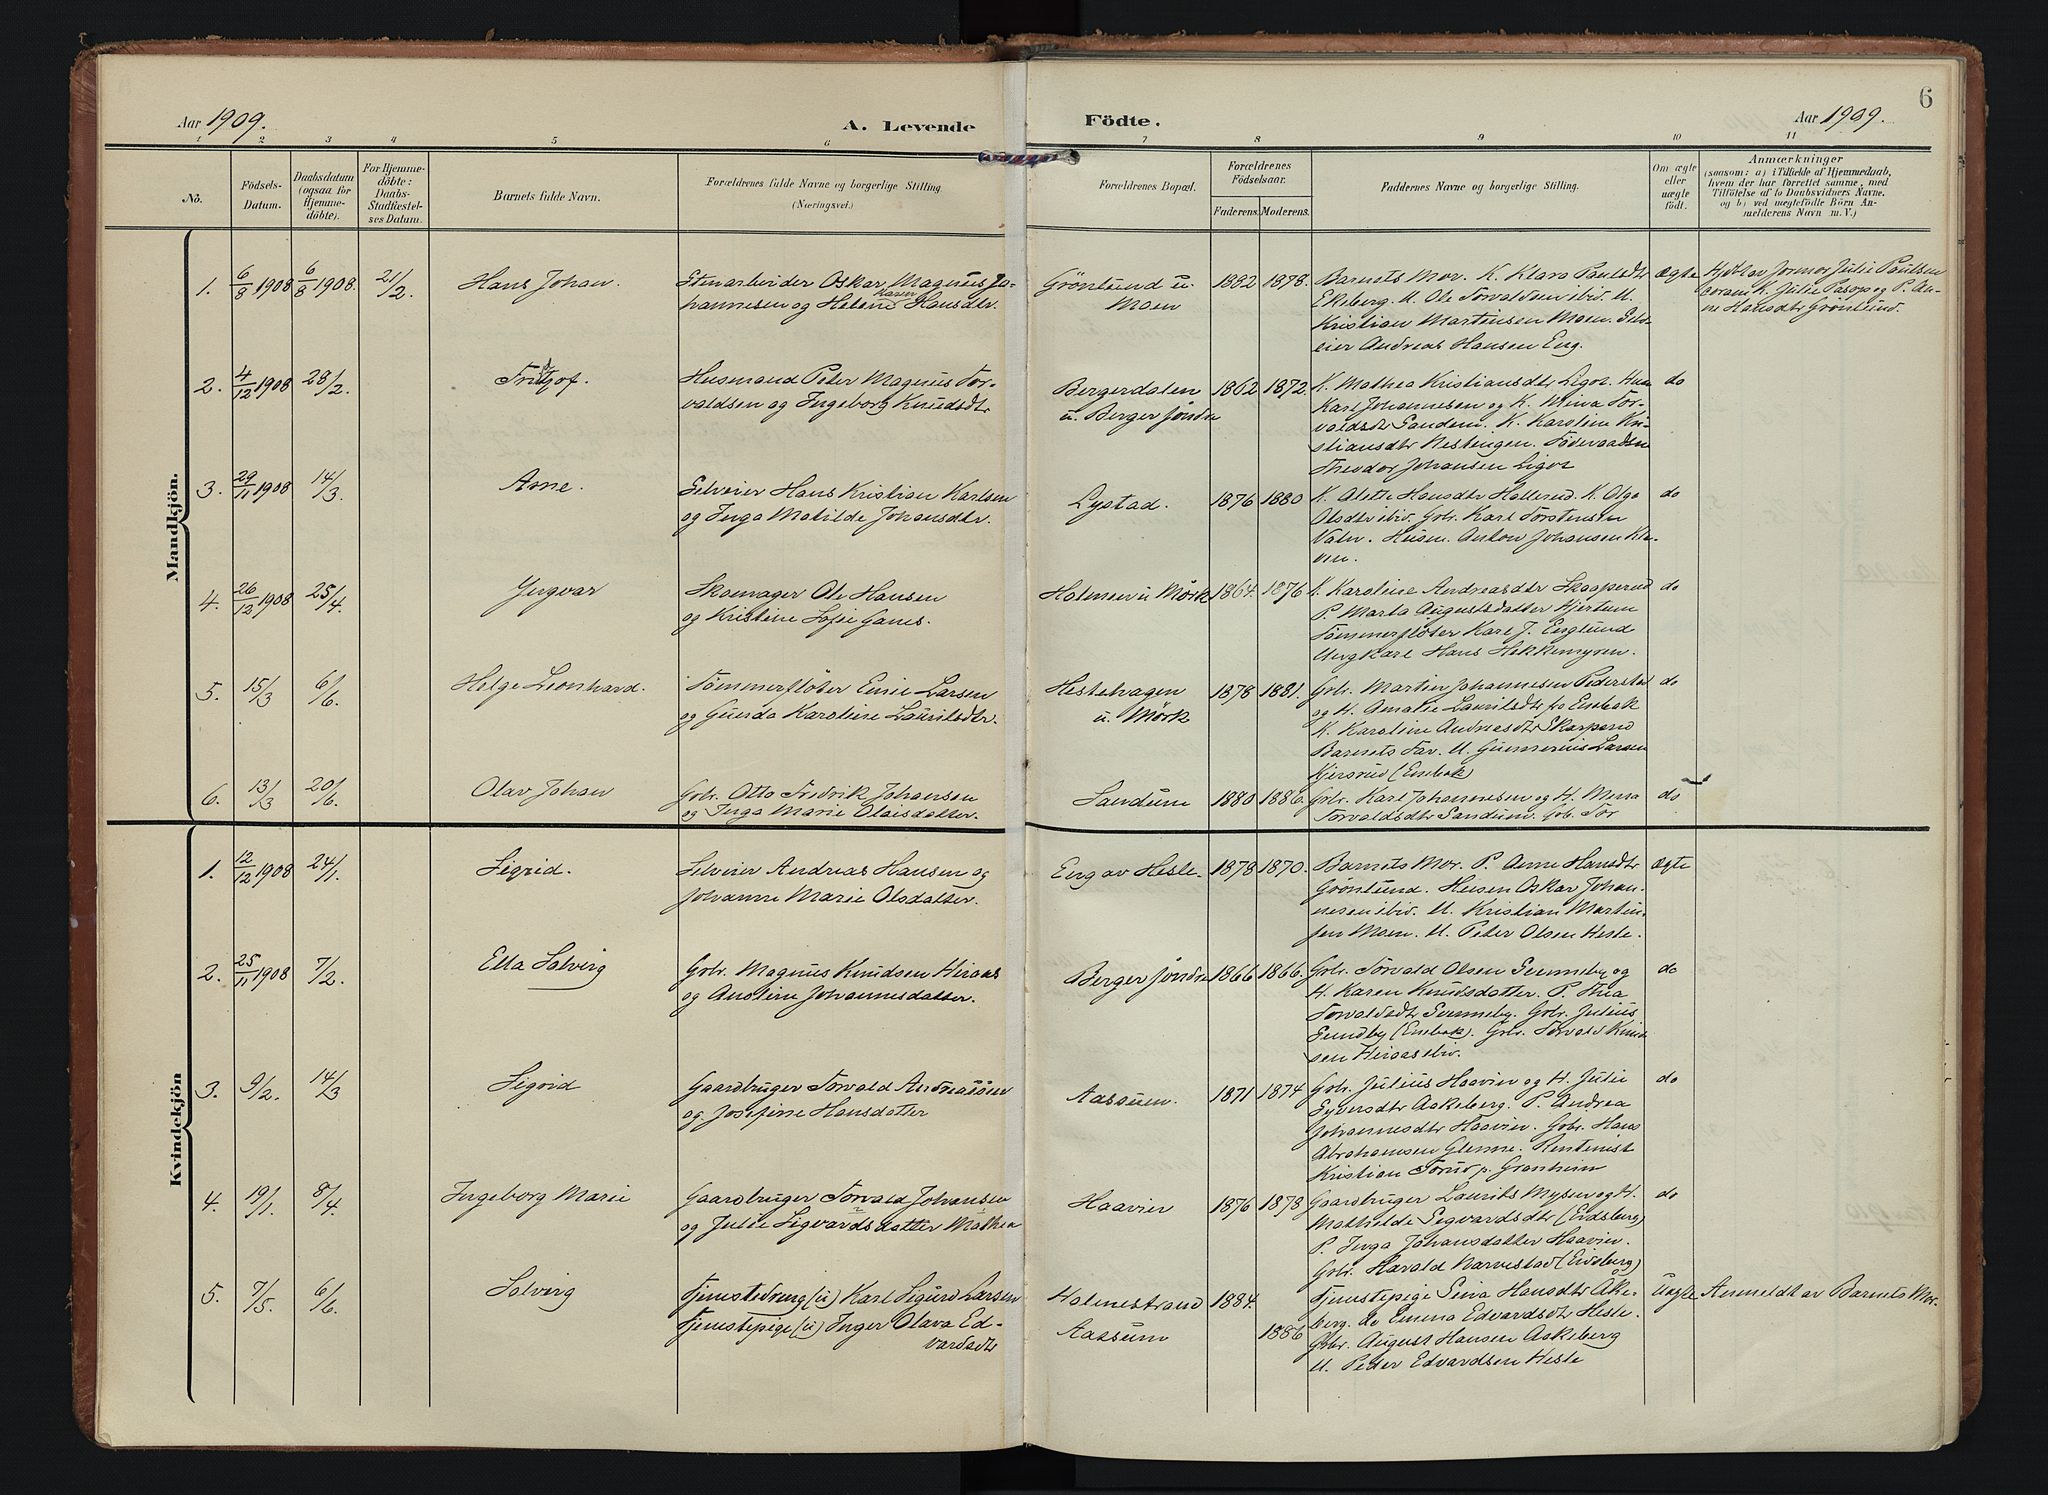 6
Aar 1909.
A. Levende
Födte.
Aar 1909.
1 2 3 4 5 6 7 8 9 10 11
No.
Födsels-
Datum.
Daabsdatum
(ogsaa for
Hjemme-
döbte).
For Hjemme-
döbte:
Daabs-
Stadfæstel-
ses Datum.
Barnets fulde Navn.
Forældrenes fulde Navne og borgerlige Stilling.
(Næringsvei.)
Forældrenes Bopæl.
Forældrenes
Födselsaar.
Faderens. Moderens.
Faddernes Navne og borgerlige Stilling.
Om ægte
eller
uægte
födt.
Anmærkninger
(saasom: a) i Tilfælde af Hjemmedaab,
hvem der har forrettet samme, med
Tilföielse af to Daabsvidners Navne.
og b) ved uægtefödte Börn An-
melderens Navn m. V.)
Mandkjön.
1. 6/8 1908 6/8 1908. 21/2. Hans Johan.
Stenarbeider Oskar Magnus Jo-
hannesen og Helene Karen Hansdtr.
Grönlund u.
Moen
1882 1878.
Barnets Mor. K. Klara Paulsdtr
Ekeberg. U. Ole Torvaldsen ibid. U.
Kristian Martinsen Moen. Selv-
eier Andreas Hansen Eng.
Ægte
Hjdt av Jormor Julie Paulsen
coram K. Julie
ne Hansdtr Grönlund.
2. 4/12 1908 28/2. Fritjof.
Husmand Peter Magnus Tor-
valdsen og Ingeborg Knudsdtr
Bergerdalen
u. Berger söndre
1862 1872.
K. Mathea Kristiansdtr Ligot. Hus.
Karl Johannesen og K. Mina Tor-
valdsdtr Sandem. K. Karoline Kri-
stiansdtr Nestingen.
Theodor Johansen Ligot
do
3. 29/11 1908 14/3. Arne.
Selveier Hans Kristian Karlsen
og Inga Matilde Johansdtr.
Lystad.
1876 1880
K. Alette Hansdtr Hallerud. K. Olga
Olsdtr ibid. Gbr. Karl Torstensen
Valer. Husm. Anton Johansen Klo-
ven.
do
4. 26/12 1908 25/4. Yngvar
Skomager Ole Hansen
og Kristine Sofie Hans.
Holmen u Mörk
1864. 1876
K. Karoline Andreasdtr Skarperud
P. Marta Augustsdatter Hjertum
Tömmerflöter Karl J. Englund
Ungkarl Hans Hekkemyren.
do
5. 15/3 6/6. Helge Leonhard.
Tömmerflöter Emil Larsen
og Gunda Karoline Lauritsdtr.
Hestehagen
u. Mörk
1878 1881.
Gbr. Martin Johannesen Pederstad
og H. Amalie Lauritsdtr fra Enebak
K. Karoline Andreasdtr Skarperud
Barnets Far. U. Gunnerius Larsen
Kjersrud (Enebak)
do
6. 13/3 20/6. Olav Johan
Gbr. Otto Fredrik Johansen
og Inga Marie Olaisdatter.
Sandum
1880 1886.
Gbr. Karl Johannesen og H. Mina
Torvaldsdtr Sandum. Gbr. Tor
do
Kvindekjön
1. 12/12 1908 24/1. Sigrid.
Selveier Andreas Hansen og
Johanne Marie Olsdatter.
Eng av Hesle.
1878 1870.
Barnets Mor. P. Anne Hansdtr
Grönlund. Husm Oskar Johan-
nesen ibid. U. Kristian Martin-
sen Moen. U. Peter Olsen Hesle.
Ægte
2. 25/11 1908 7/2. Ella Solveig
Gbr. Magnus Knudsen Hiraas
og Anstine Johannesdatter.
Berger söndre
1866 1866.
Gbr. Torvald Olsen Svenneby og
H. Karen Knudsdatter. P. Thea
Torvaldsdtr Svenneby. Gbr. Julius
Sundby (Enebak). Gbr. Torvald Knud-
sen Hiraas ibid.
do
3. 9/2. 14/3 Sigrid
Gaardbruger Torvald Andreassen
og Josefine Hansdatter
Aassum.
1871 1874
Gbr. Julius Haavier og H. Julie
Syversdtr Askeberg. P. Andrea
Johannesdtr Haavier. Gbr. Hans
Abrahamsen Glenne. Rentenist
Kristian Torud p. Granheim
do
4. 19/1. 8/4. Ingeborg Marie
Gaardbruger Torvald Johansen
og Julie Sigvardsdatter Mathea
Haavier
1876 1878
Gaardbruger Laurits Mysen og H.
Mathilde Segvardsdtr (Eidsberg)
P. Inga Johansdatter Haavier.
Gbr. Harald Narvestad (Eidsberg)
do
5. 7/5. 6/6. Solveig
Tjenstedreng (u) Karl Sigurd Larsen
Tjenstepige (u) Inger Olava Ed-
vardsdtr
Holmestrand
Aassum
1884.
1886
Tjenstepige Sina Hansdtr Aske-
berg. do Emma Edvardsdtr Hesle.
Gbr. August Hansen Askeberg
U. Peder Edvardsen Hesle
Uægte
Anmeldt av Barnets Mor.